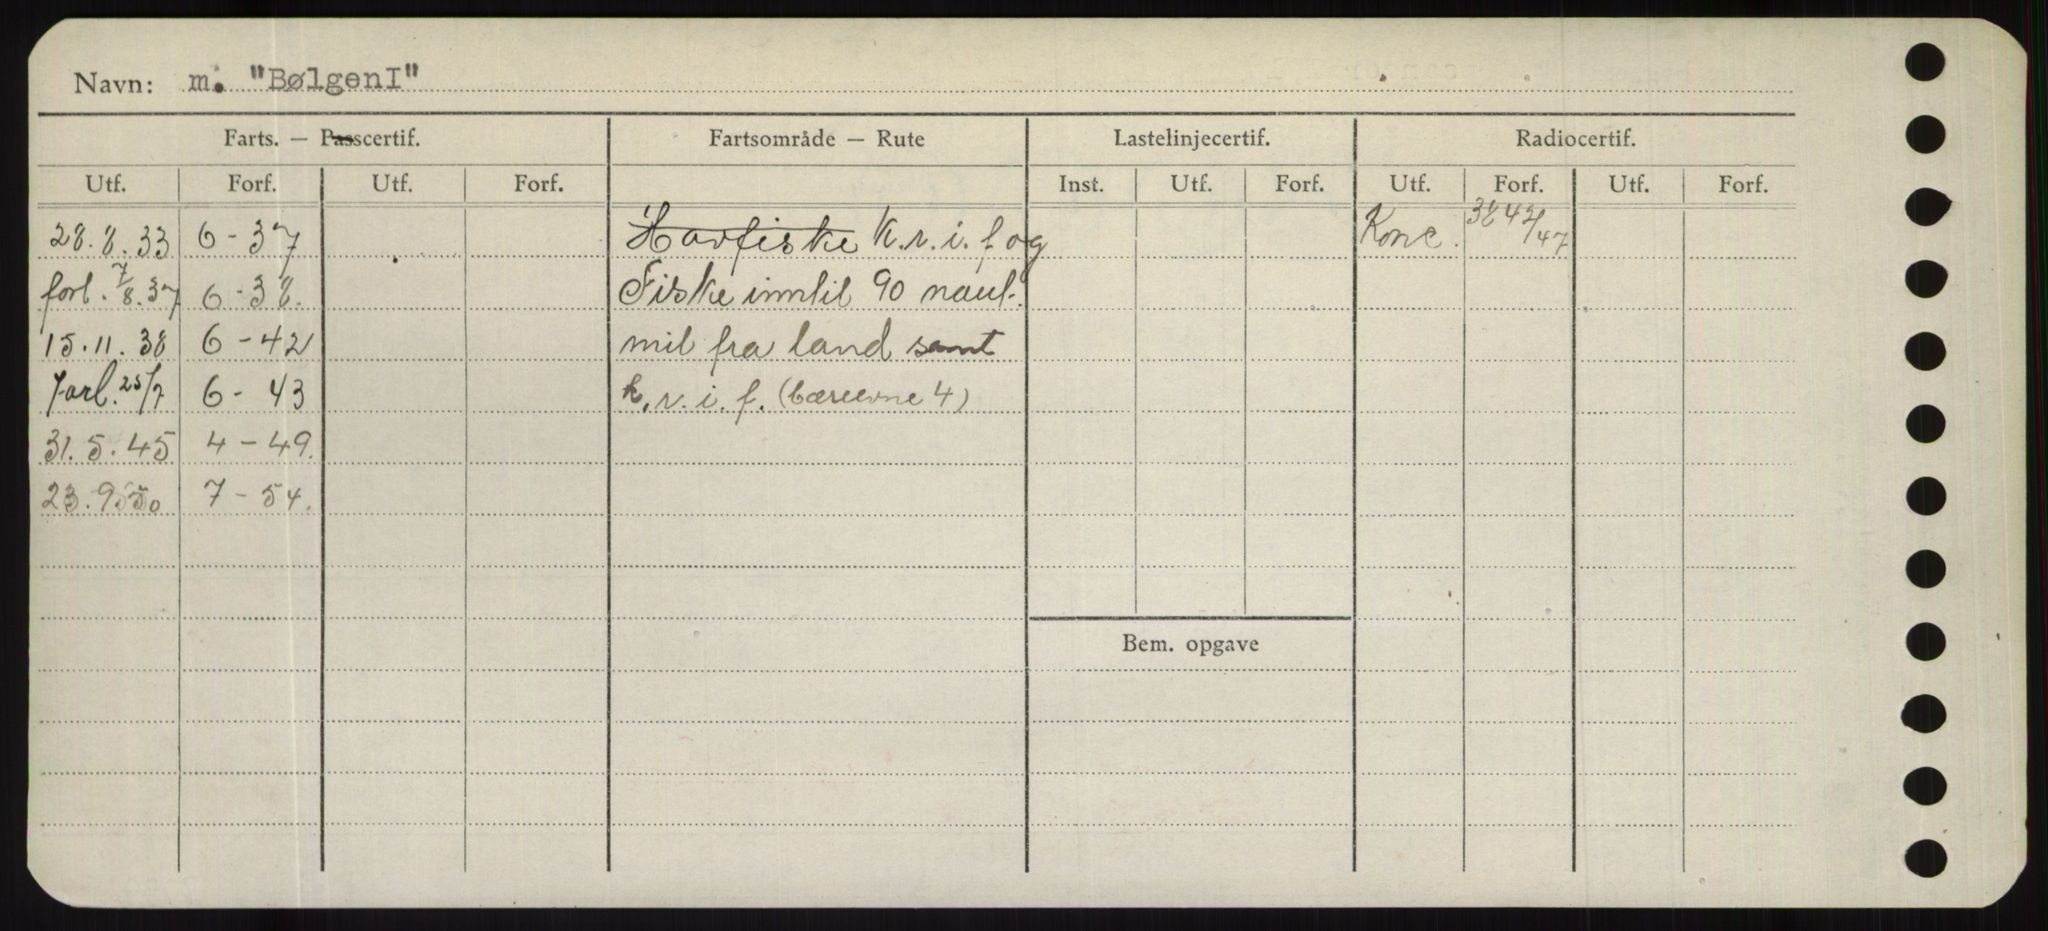 Navn: m. "BølgenI"
Farts. — Passcertif. Fartsområde — Rute Lastelinjecertif. Radiocertif.
Utf. Forf. Utf. Forf. Inst. Utf. Forf. Utf. Forf. Utf. Forf.
28.8.33 6-37 Havfiske K.r.i.f og Konc. 3842/47
forl. 7/8.37 6-38. Fiske inntil 90 naut.
15.11.38 6-42 mil fra land samt
Forl. 25/7 6-43 k.r.i.f. (bæreevne 4)
31.5.45 4-49.
23.9.50 7-54.
Bem. opgave